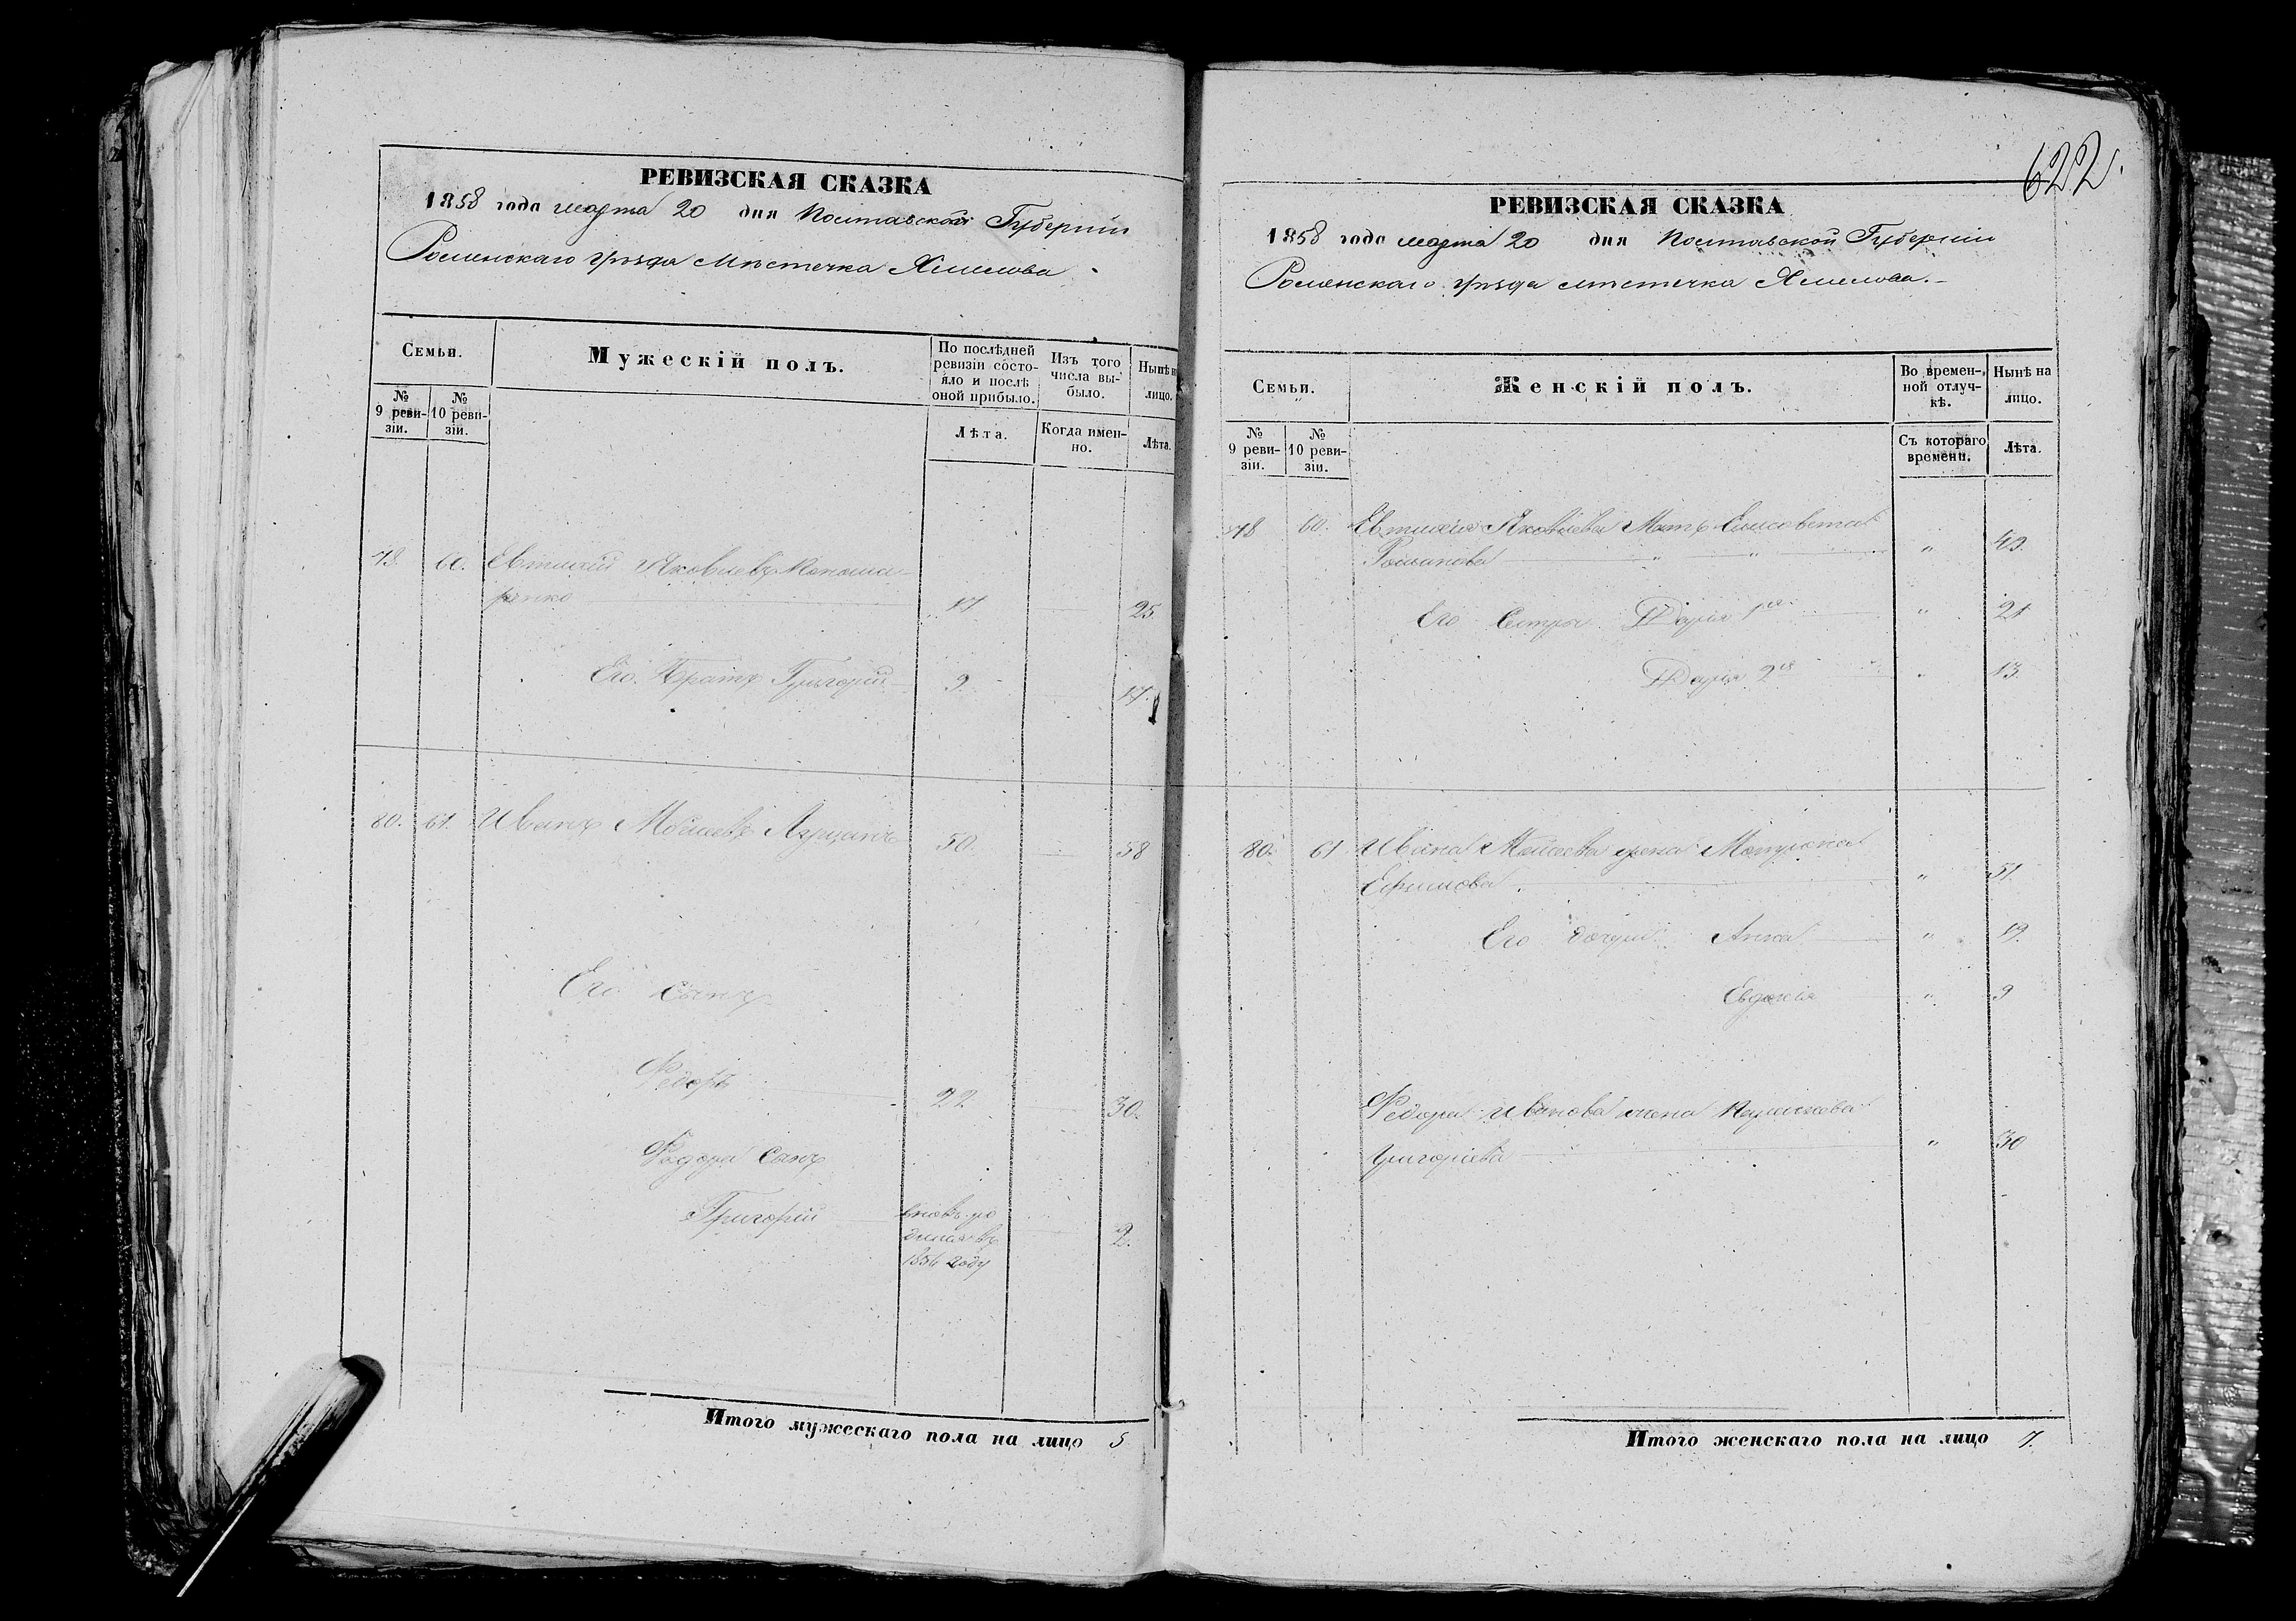 РЕВИЗСКАЯ СКАЗКА
1858 года марта 20 дня Полтавской Губернии
Роменскаго уѣзда Мѣстечка Хмелова
Семьи.
Мужескій полъ.
По послѣдней ревизіи состояло и послѣ оной прибыло.
Изъ того числа выбыло.
Нынѣ на лицо.
№ 9 ревизіи.
№ 10 ревизіи.
Лѣта.
Когда именно.
Лѣта.
60. Евтихій Яковлевъ
17 25
Его Братъ Григорій 9 17.
80. 61. Иванъ Моисеевъ 50. 58
Его сынъ
Федоръ 22 30.
Федора Сынъ
Григорій вновь ро
дился въ 2.
1856 году
Итого мужескаго пола на лицо 5
622
РЕВИЗСКАЯ СКАЗКА
1858 года марта 20 дня Полтавской Губерніи
Роменскаго уѣзда мѣстечка Хмелова.
Семьи.
Женскій полъ.
Во временной отлучкѣ.
Нынѣ на лицо.
№ 9 ревизіи.
№ 10 ревизіи.
Съ котораго времени.
Лѣта.
60. Евтихія Яковлева Мать Елисавета
Романова "
Его Сестры Дарія 1я " 21
Дарія 2я " 13.
80. 61 Ивана Моисеева жена
Ефимова " 51
Его дочери Анна " 19.
Евдокія " 9
Федора Иванова жена
Григоріева " 30
Итого женскаго пола на лицо 7.